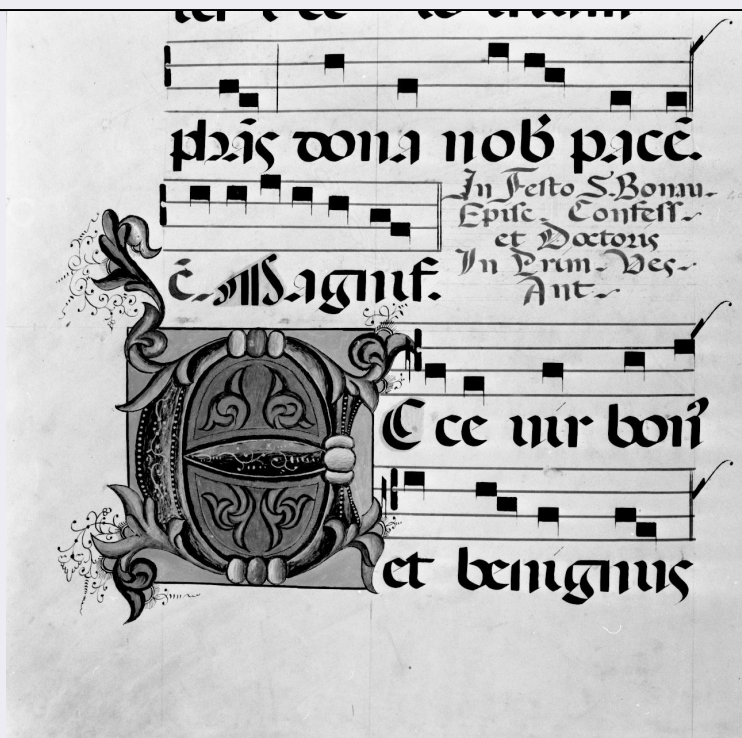 phãis dona nob̃ pacẽ.
In Festo S. Bonau-
Episc. Confess-
et Doctoris
In Prim- Ves-
Ant-
c̃. Magnif.
E
Ecce uir bon̄
et benignus